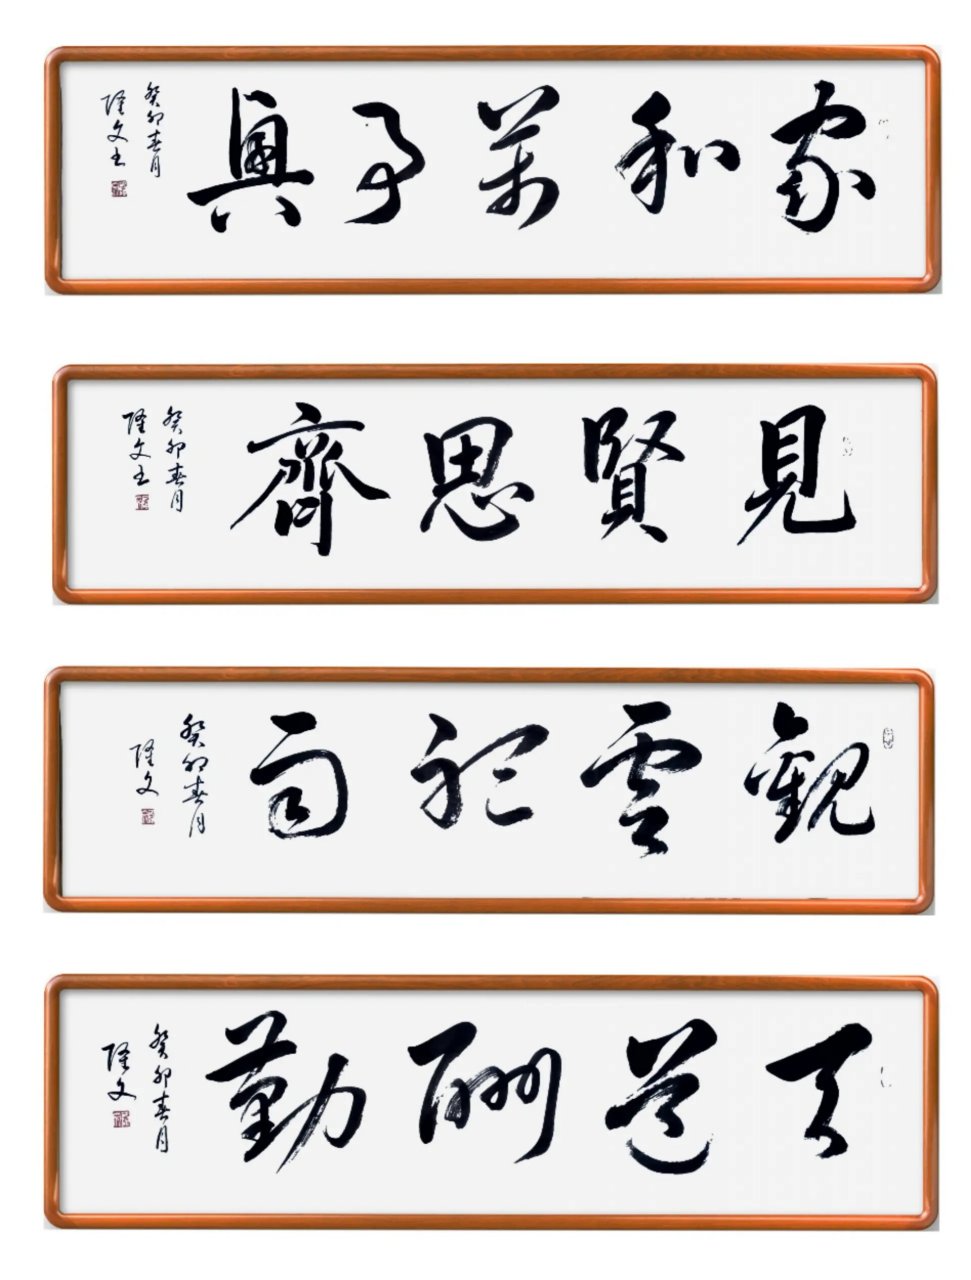 家和萬事興
癸卯春月
隆文书
見賢思齊
癸卯春月
隆文书
觀雲聽雨
癸卯春月
隆文
天道酬勤
癸卯春月
隆文